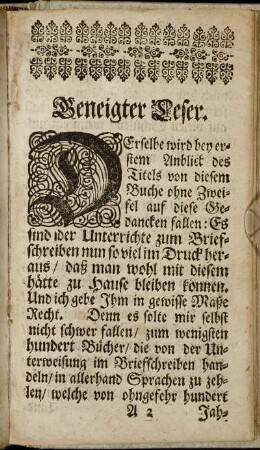 Geneigter Leser.
DErselbe wird bey er-
stem Anblick des
Titels von diesem
Buche ohne Zwei-
fel auf diese Ge-
dancken fallen: Es
sind der Unterrichte zum Brief-
schreiben nun so viel im Druck her-
aus/ daß man wohl mit diesem
hätte zu Hause bleiben können.
Und ich gebe Ihm in gewisse Maße
Recht. Denn es solte mir selbst
nicht schwer fallen/ zum wenigsten
hundert Bücher/ die von der Un-
terweisung im Briefschreiben han-
deln/ in allerhand Sprachen zu zeh-
len/ welche von ohngefehr hundert
A 2 Jah-